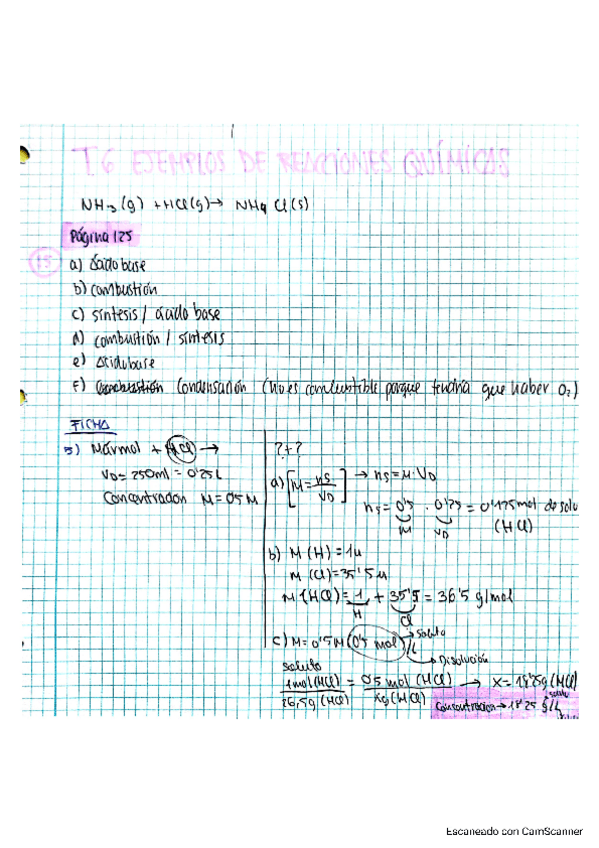 T.6 EJEMPLOS DE REACCIONES QUÍMICAS
NH₃(g) + HCl(g) → NH₄Cl(s)
Página 125
15 a) Ácido base
b) combustión
c) síntesis / ácido base
d) combustión / síntesis
e) Ácido base
F) Condensación (No es combustible porque tendría que haber O₂)
FICHA
5) Mármol + HCl → ? + ?
VD = 250ml = 0'25L
Concentración M = 0'5 M
a) [M = ns/VD] → ns = M · VD
ns = 0'5 · 0'25 = 0'125 mol de solu
M VD (HCl)
b) M (H) = 1u
M (Cl) = 35'5 u
M (HCl) = 1 + 35'5 = 36'5 g/mol
H Cl
c) M = 0'5 M (0'5 mol)/L → Soluto
→ Disolución
soluto
1 mol (HCl) / 36,5g (HCl) = 0'5 mol (HCl) / xg (HCl) → X = 18'25g (HCl)
soluto
Concentración → 18'25 g/L
Escaneado con CamScanner